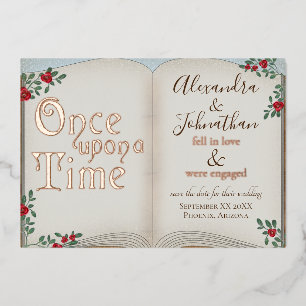 Once
upon a
Time
Alexandra
&
Johnathan
fell in love
&
were engaged
save the date for their wedding
September XX 20XX
Phoenix, Arizona